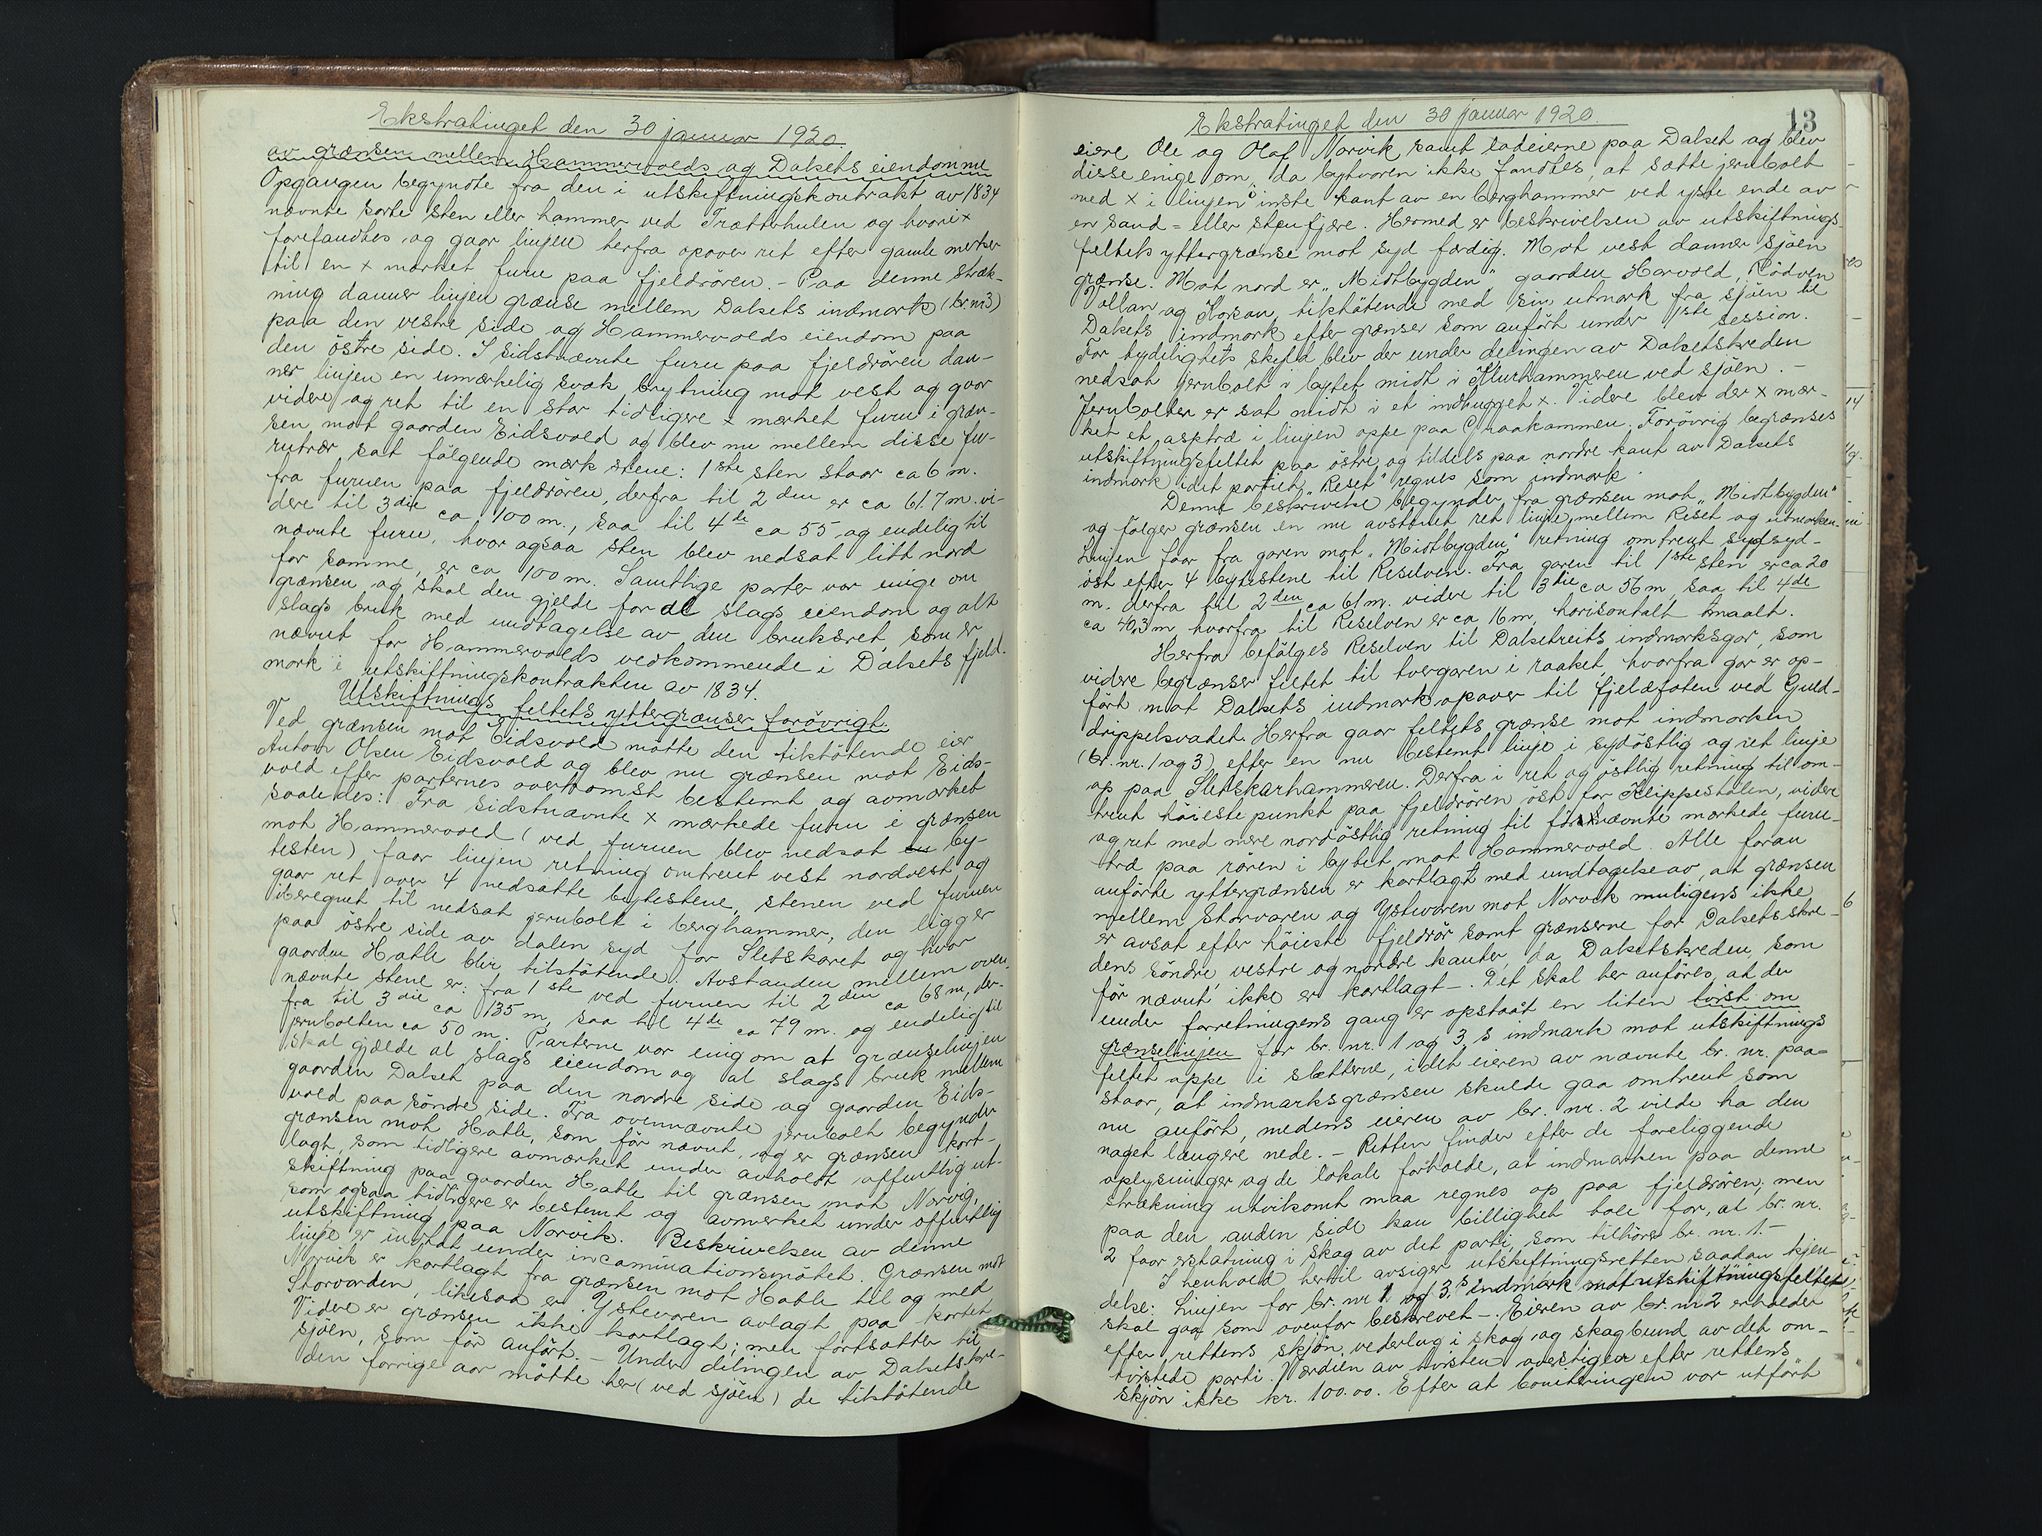 Ekstratinget den 30 januar 1920.
av grænsen mellem Hammervolds og Dalsets eiendomme
Opgangen begyndte fra den i utskiftningskontrakt av 1834
nævnte sorte sten eller hammer ved Trætterhulen og hvori x
forefandtes og gaar linjen herfra opover ret efter gamle merker
til en x mærket furu paa fjeldrören. - Paa denne stræk-
ning danner linjen grænse mellem Dalsets indmark (br.nr 3)
paa den vestre side og Hammervolds eiendom paa
den östre side. I sidstnævnte furu paa fjeldrören dan-
ner linjen en umærkelig svak brytning mot vest og gaar
videre og ret til en stor tidligere x mærket furu i græn-
sen mot gaarden Eidsvold og blev nu mellem disse fu-
rutrær sat fölgende mærkstene: 1ste sten staar ca 6 m.
fra furuen paa fjeldrören, derfra til 2den er ca 61.7 m. vi-
dere til 3die ca 100 m., saa til 4de ca 55 og endelig til
nævnte furu, hvor ogsaa sten blev nedsat litt nord
for samme, er ca 100 m. Samtlige parter var enige om
grænsen og skal den gjelde for al slags eiendom og alt
slags bruk med undtagelse av den bruksret, som er
nævnt for Hammervolds vedkommende i Dalsets fjeld-
mark i utskiftningskontrakten av 1834.
Utskiftnings feltets yttergrænser forövrigt
Ved grænsen mot Eidsvold mötte den tilstötende eier
Anton Olsen Eidsvold og blev nu grænsen mot Eids-
vold efter parternes overkomst bestemt og avmærket
saaledes: Fra sidstnævnte x mærkede furu i grænsen
mot Hammervold (ved furuen blev nedsat en by-
testen) faar linjen retning omtrent vest nordvest og
gaar ret over 4 nedsatte bytestene, stenen ved furuen
iberegnet til nedsat jernbolt i berghammer, den ligger
paa östre side av dalen syd for Sletskaret og hvor
gaarden Hatle blir tilstötende. Avstanden mellem oven-
nævnte stene er: fra 1ste ved furuen til 2den ca 68 m, der-
fra til 3die ca 135 m, saa til 4de ca 79 m. og endelig til
jernbolten ca 50 m. Parterne var enig om at grænselinjen
skal gjælde al slags eiendom og al slags bruk mellem
gaarden Dalset paa den nordre side og gaarden Eids-
vold paa söndre side. Fra ovennævnte jernbolt begynder
grænsen mot Hatle, som för nævnt, og er grænsen kort-
lagt, som tidligere avmærket under avholdt offentlig ut-
skiftning paa gaarden Hatle til grænsen mot Norvig,
som ogsaa tidligere er bestemt og avmerket under offentlig
utskiftning paa Norvik. Beskrivelsen av denne
linje er indtat under incaminationsmötet. Grænsen mot
Norvik er kortlagt fra grænsen mot Hatle til og med
Storvorden, likesaa er Ystevoren avlagt paa kortet
Videre er grænsen ikke kortlagt, men fortsatter til
sjöen, som för anfört. - Under delingen av Dalsetskre-
den forrige aar mötte her (ved sjöen) de tilstötende
Ekstratinget den 30 januar 1920.
13
eiere Ole og Olaf Norvik samt lodeierne paa Dalset og blev
disse enige om, da bytvoren ikke fandtes, at sætte jernbolt
med x i linjen i inste kant av en berghammer ved yste ende av
en sand= eller stenfjære. Hermed er beskrivelsen av utskiftnings-
feltets yttergrænse mot syd færdig. Mot vest danner sjöen
grænse. Mot nord er „Midtbygden" gaarden Harvold, Rödven
Vollan og Korsan tilstötende med sin utmark fra sjöen til
Dalsets indmark efter grænser som anfört under 1ste session.
For tydelighets skyld blev der under delingen av Dalsetskreden
nedsat jernbolt i bytet midt i Klurhammeren ved sjöen. -
Jernbolten er sat midt i et indhugget x. Videre blev der x mær-
ket et asptræ i linjen oppe paa Graakammen. Forövrig begrænses
utskiftningsfeltet paa östre og tildels paa nordre kant av Dalsets
indmark idet partiet „Reset" regnes som indmark.
Denne beskrivelse begynder fra grænsen mot „Midtbygden"
og fölger grænsen en nu avstukket ret linje mellem Reset og utmarken.
Linjen faar fra garen mot „Midtbygden" retning omtrent sydsyd-
öst efter 4 bytestene til Reselven. Fra garen til 1ste sten er ca 20
m. derfra til 2den ca 61 m. videre til 3die ca 56 m, saa til 4de
ca 40,3 m hvorfra til Reselven er ca 16 m, horisontalt maalt.
Herfra befölges Reselven til Dalsetreits indmarksgar, som
videre begrænser feltet til tvergaren i raaket, hvorfra gar er op-
fört mot Dalsets indmark opover til fjeldfoten ved Guld-
drippelsvadet. Herfra gaar feltets grænse mot indmarken
(br. nr. 1 og 3) efter en nu bestemt linje i sydöstlig og ret linje
op paa Sletskarhammeren. Derfra i ret og östlig retning til om-
trent höieste punkt paa fjeldrören öst for Klippestolen, videre
og ret med mere nordöstlig retning til förnævnte mærkede furu-
træ paa rören i bytet mot Hammervold. Alle foran
anförte yttergrænsen er kortlagt med undtagelse av, at grænsen
mellem Storvaren og Ystevoren mot Norvik muligens ikke
er avsat efter höieste fjeldrör samt grænserne for Dalsetsskre-
dens söndre, vestre og nordre kanter, da Dalsetskreden, som
för nævnt, ikke er kortlagt. - Det skal her anföres, at der
under forretningens gang er opstaat en liten tvist om
grænselinjen for br. nr. 1 og 3,s indmark mot utskiftnings
feltet oppe i slætterne, idet eieren av nævnte br. nr. paa=
staar, at indmarksgrænsen skulde gaa omtrent som
nu anfört, medens eieren av br. nr. 2 vilde ha den
noget længere nede. - Retten finder efter de foreliggende
oplysninger og de lokale forholde, at indmarken paa denne
strækning utvilsomt maa regnes op paa fjeldrören; men
paa den anden side kan billighet tale for, at br. nr.
2 faar erstatning i skog av det parti, som tilhörer br. nr. 1. -
I henhold hertil avsiger utskiftningsretten saadan kjen-
delse: Linjen for br. nr 1 og 3,s indmark mot utskiftningsfeltet
skal gaa som ovenfor beskrevet. - Eieren av br. nr 2 erholder
efter rettens skjön vederlag i skog og skogbund av det om-
tvistede parti. Værdien av tvisten overstiger efter rettens
skjön ikke kr. 100.00. Efter at boniteringen var utfört